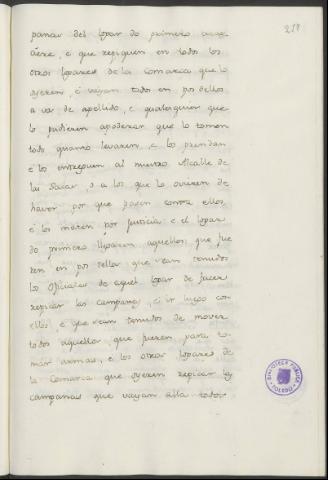 217
panas del logar do primero acae
ciere, e que repiquen en todos los
otros logares de la Comarca que lo
oyeren, e vayan todos en pos dellos
a voz de apellido, e qualesquier que
lo pudieren apoderar que lo tomen
todo quanto levaren, e los prendan
e los entreguen al nuestro Alcalle de
las Sacas, o a los que lo ovieren de
haver por que pasen contra ellos
e los maten por justicia: e el logar
do primero llegaren aquellos que fue
ren en pos dellos que sean tenudos
los oficiales de aquel logar de facer
repicar las campanas, e ir luego con
ellos, e que sean tenudos de mover
todos aquellos que fueren para to-
mar armas, e los otros logares de
la Comarca que oyeren repicar las
campanas que vayan alla todos
BIBLIOTECA PUBLICA
TOLEDO